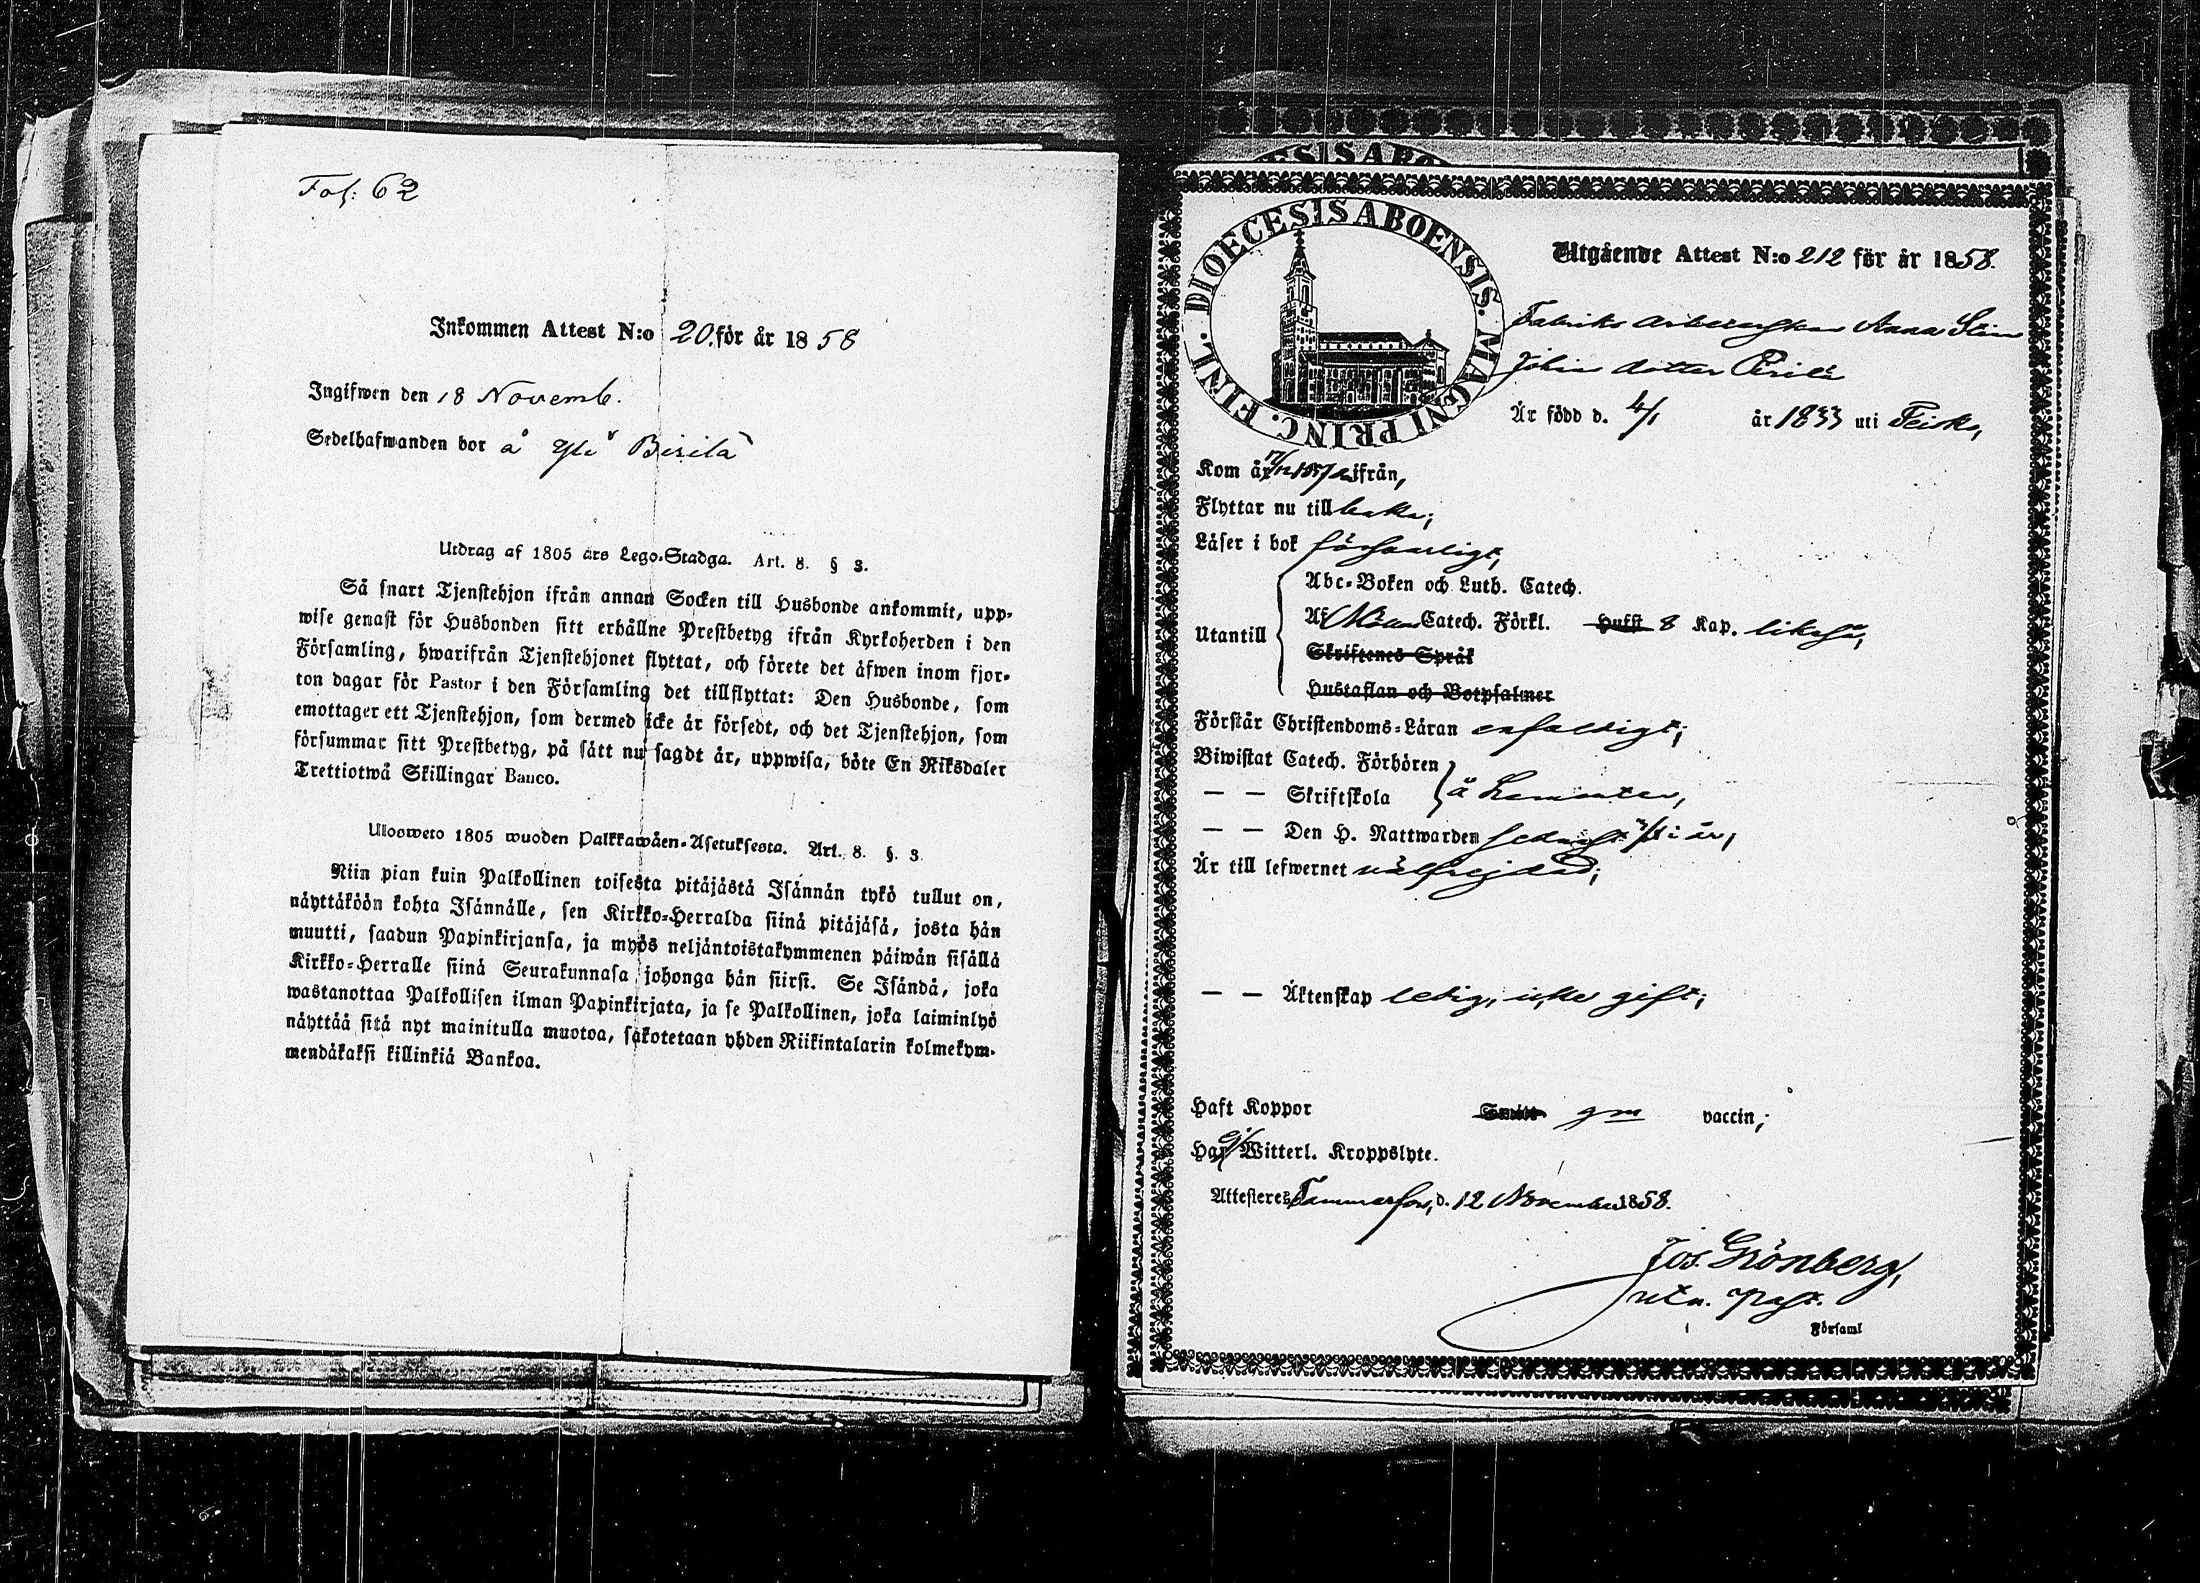 Fol: 62
Inkommen Attest N:o 20. för år 1858
Ingifwen den 18 Novemb.
Sedelhafwanden bor å Yli Birilä
Utdrag af 1805 års Lego-Stadga. Art. 8. § 3.
Så snart Tjenstehjon ifrån annan Socken till Husbonde ankommit, upp-
wise genast för Husbonden sitt erhållne Prestbetyg ifrån Kyrkoherden i den
Församling, hwarifrån Tjenstehjonet flyttat, och förete det äfwen inom fjor-
ton dagar för Pastor i den Församling det tillflyttat: Den Husbonde, som
emottager ett Tjenstehjon, som dermed icke är försedt, och det Tjenstehjon, som
försummar sitt Prestbetyg, på sätt nu sagdt är, uppwisa, böte En Riksdaler
Trettiotwå Skillingar Banco.
Ulosweto 1805 wuoden Palkkawäen-Asetuksesta. Art. 8. §. 3
Niin pian kuin Palkollinen toisesta pitäjästä Isännän tykö tullut on,
näyttäköön kohta Isännälle, sen Kirkko-Herralda siinä pitäjäsä, josta hän
muutti, saadun Papinkirjansa, ja myös neljäntoistakymmenen päiwän sisällä
Kirkko-Herralle siinä Seurakunnasa johonga hän siirsi. Se Isändä, joka
wastanottaa Palkollisen ilman Papinkirjata, ja se Palkollinen, joka laiminlyö
näyttää sitä nyt mainitulla muotoa, sakotetaan yhden Riikintalarin kolmekym-
mendäkaksi killinkiä Bankoa.
DIOECESIS ABOENSIS. MAGNI PRINC. FINL.
Utgående Attest N:o 212 för år 1858.
Fabriks arbeterskan Anna Stina
Johan dotter Pirilä
Är född d. 4/1 år 1833 uti Teisko,
Kom år 1857 ifrån,
Flyttar nu tillbaka;
Läser i bok försvarligt,
Utantill
Abc-Boken och Luth. Catech.
Af Möllers Catech. Förkl. Hufst 8 Kap. likaså,
Skriftenes Språk
Hustaflan och Botpsalmer
Förstår Christendoms-Läran enfaldigt;
Biwistat Catech. Förhören
— — Skriftskola å Lemnten,
— — Den H. Nattwarden sednast i år,
Är till lefwernet wälfrejdad;
— — Äktenskap ledig, icke gift;
Haft Koppor Smitt gm vaccin;
Har ej Witterl. Kroppslyte.
Attesteres Tammerfors, d. 12 November 1858.
Jos. Grönberg,
utn. Past.
Församl